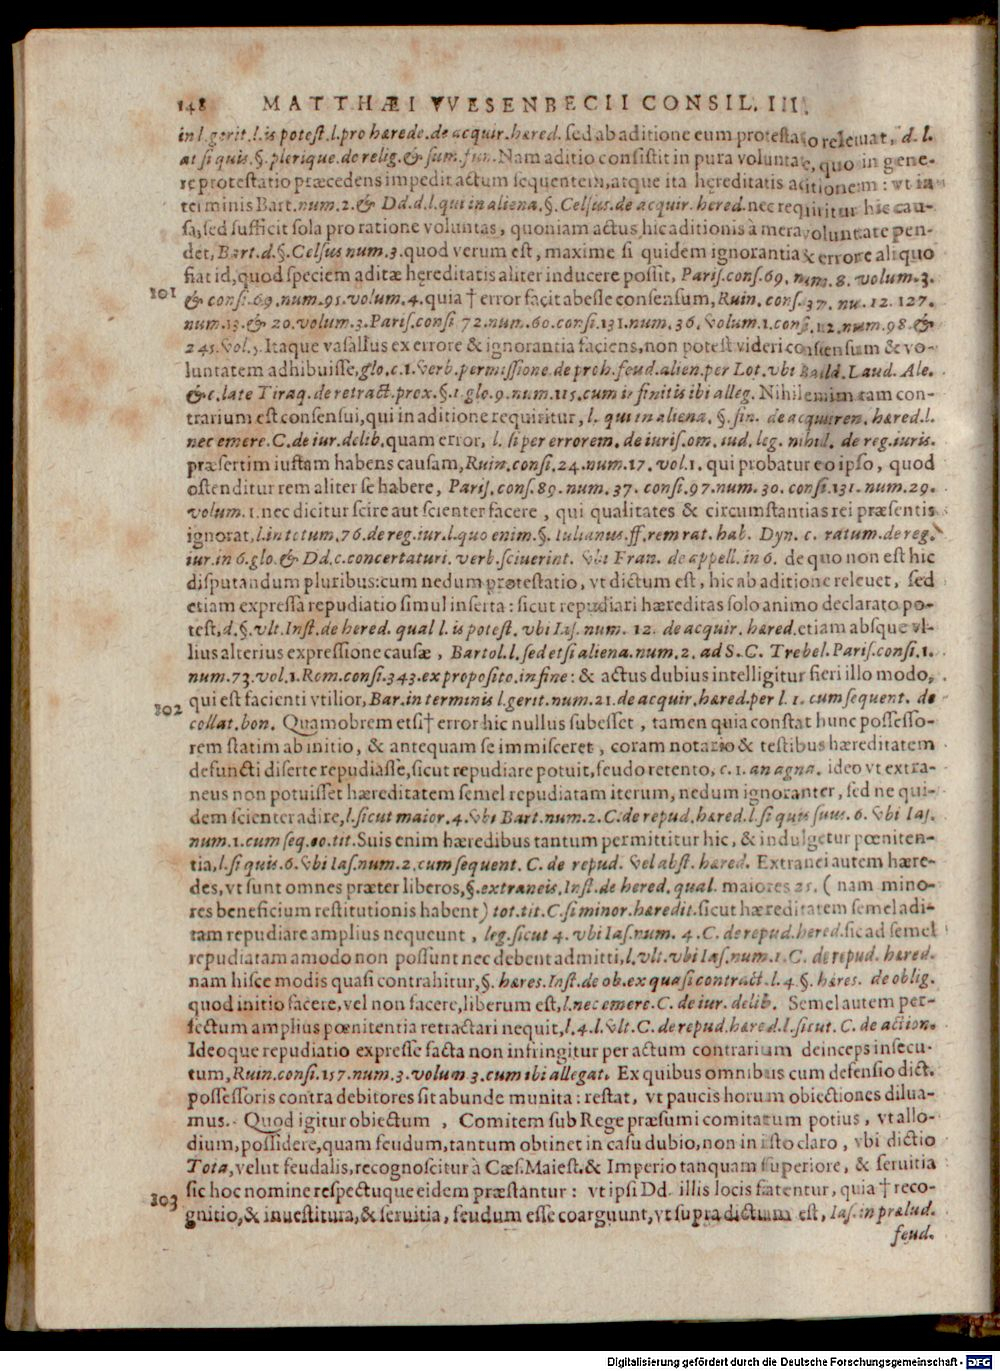 148 MATTHÆI VVESENBECII CONSIL. III.
in l. gerit. l. is potest. l. pro hærede. de acquir. hæred. sed ab aditione eum protestatio releuat, d. l.
at si quis. §. plerique. de relig. & sum. fun. Nam aditio consistit in pura voluntate, quo in gene-
re protestatio præcedens impedit actum sequentem, atque ita hęreditatis aditionem: vt in
terminis Bart. num. 2. & Dd. d. l. qui in aliena. §. Celsus. de acquir. hered. nec requiritur hic cau-
sa, sed sufficit sola pro ratione voluntas, quoniam actus hic aditionis à mera voluntate pen-
det, Bart. d. §. Celsus num. 3. quod verum est, maxime si quidem ignorantia & errore aliquo
fiat id, quod speciem aditæ hęreditatis aliter inducere possit, Paris. cons. 69. num. 8. volum. 3.
301 & consi. 69. num. 91. volum. 4. quia † error facit abesse consensum, Ruin. cons. 37. nu. 12. 127.
num. 13. & 20. volum. 3. Paris. consi 72. num. 60. consi. 131. num. 36. volum. 1. consi. 112. num. 98. &
245. vol. 5. Itaque vasallus ex errore & ignorantia faciens, non potest videri consensum & vo-
luntatem adhibuisse, glo. c. 1. verb. permissione. de proh. feud. alien. per Lot. vbi Bald. Laud. Ale.
& c. late Tiraq. de retract. prox. §. 1. glo. 9. num. 115. cum infinitis ibi alleg. Nihil enim tam con-
trarium est consensui, qui in aditione requiritur, l. qui in aliena. §. fin. de acquiren. hæred. l.
nec emere. C. de iur. delib. quam error, l. si per errorem. de iuris. om. iud. leg. nihil. de reg. iuris.
præsertim iustam habens causam, Ruin. consi. 24. num. 17. vol. 1. qui probatur eo ipso, quod
ostenditur rem aliter se habere, Paris. cons. 89. num. 37. consi. 97. num. 30. consi. 131. num. 29.
volum. 1. nec dicitur scire aut scienter facere, qui qualitates & circumstantias rei præsentis
ignorat, l. in totum. 76. de reg. iur. l. quo enim. §. Iulianus. ff. rem rat. hab. Dyn. c. ratum. de reg.
iur. in 6. glo. & Dd. c. concertaturi. verb. sciuerint. vbi Fran. de appell. in 6. de quo non est hic
disputandum pluribus: cum nedum protestatio, vt dictum est, hic ab aditione releuet, sed
etiam expressa repudiatio simul inserta: sicut repudiari hæreditas solo animo declarato po-
test, d. §. vlt. Inst. de hered. qual l. is potest. vbi Ias. num. 12. de acquir. hæred. etiam absque vl-
lius alterius expressione causæ, Bartol. l. sed etsi aliena. num. 2. ad S. C. Trebel. Paris. consi. 1.
num. 73. vol. 1. Rom. consi. 343. ex proposito. in fine: & actus dubius intelligitur fieri illo modo,
qui est facienti vtilior, Bar. in terminis l. gerit. num. 21. de acquir. hæred. per l. 1. cum sequent. de
302 collat. bon. Quamobrem etsi † error hic nullus subesset, tamen quia constat hunc possesso-
rem statim ab initio, & antequam se immisceret, coram notario & testibus hæreditatem
defuncti diserte repudiasse, sicut repudiare potuit, feudo retento, c. 1. an agna. ideo vt extra-
neus non potuisset hæreditatem semel repudiatam iterum, nedum ignoranter, sed ne qui-
dem scienter adire, l. sicut maior. 4. vbi Bart. num. 2. C. de repud. hæred. l. si quis suus. 6. vbi Ias.
num. 1. cum seq. eo. tit. Suis enim hæredibus tantum permittitur hic, & indulgetur pœniten-
tia, l. si quis. 6. vbi Ias. num. 2. cum sequent. C. de repud. vel abst. hæred. Extranei autem hære-
des, vt sunt omnes præter liberos, §. extraneis. Inst. de hered. qual. maiores 25. (nam mino-
res beneficium restitutionis habent) tot. tit. C. si minor. hæredit. sicut hæreditatem semel adi-
tam repudiare amplius nequeunt, leg. sicut 4. vbi Ias. num. 4. C. de repud. hered. sic ad semel
repudiatam amodo non possunt nec debent admitti, l. vlt. vbi Ias. num. 1. C. de repud. hæred.
nam hisce modis quasi contrahitur, §. hæres. Inst. de ob. ex quasi contract. l. 4. §. hæres. de oblig.
quod initio facere, vel non facere, liberum est, l. nec emere. C. de iur. delib. Semel autem per-
fectum amplius pœnitentia retractari nequit, l. 4. l. vlt. C. de repud. hæred. l. sicut. C. de action.
Ideoque repudiatio expresse facta non infringitur per actum contrarium deinceps insecu-
tum, Ruin. consi. 157. num. 3. volum 3. cum ibi allegat. Ex quibus omnibus cum defensio dict.
possessoris contra debitores sit abunde munita: restat, vt paucis horum obiectiones dilua-
mus. Quod igitur obiectum, Comitem sub Rege præsumi comitatum potius, vt allo-
dium, possidere, quam feudum, tantum obtinet in casu dubio, non in isto claro, vbi dictio
Tota, velut feudalis, recognoscitur à Cæs. Maiest. & Imperio tanquam superiore, & seruitia
sic hoc nomine respectuque eidem præstantur: vt ipsi Dd. illis locis fatentur, quia † reco-
303 gnitio, & inuestitura, & seruitia, feudum esse coarguunt, vt supra dictum est, Ias. in prælud.
feud.
Digitalisierung gefördert durch die Deutsche Forschungsgemeinschaft - DFG